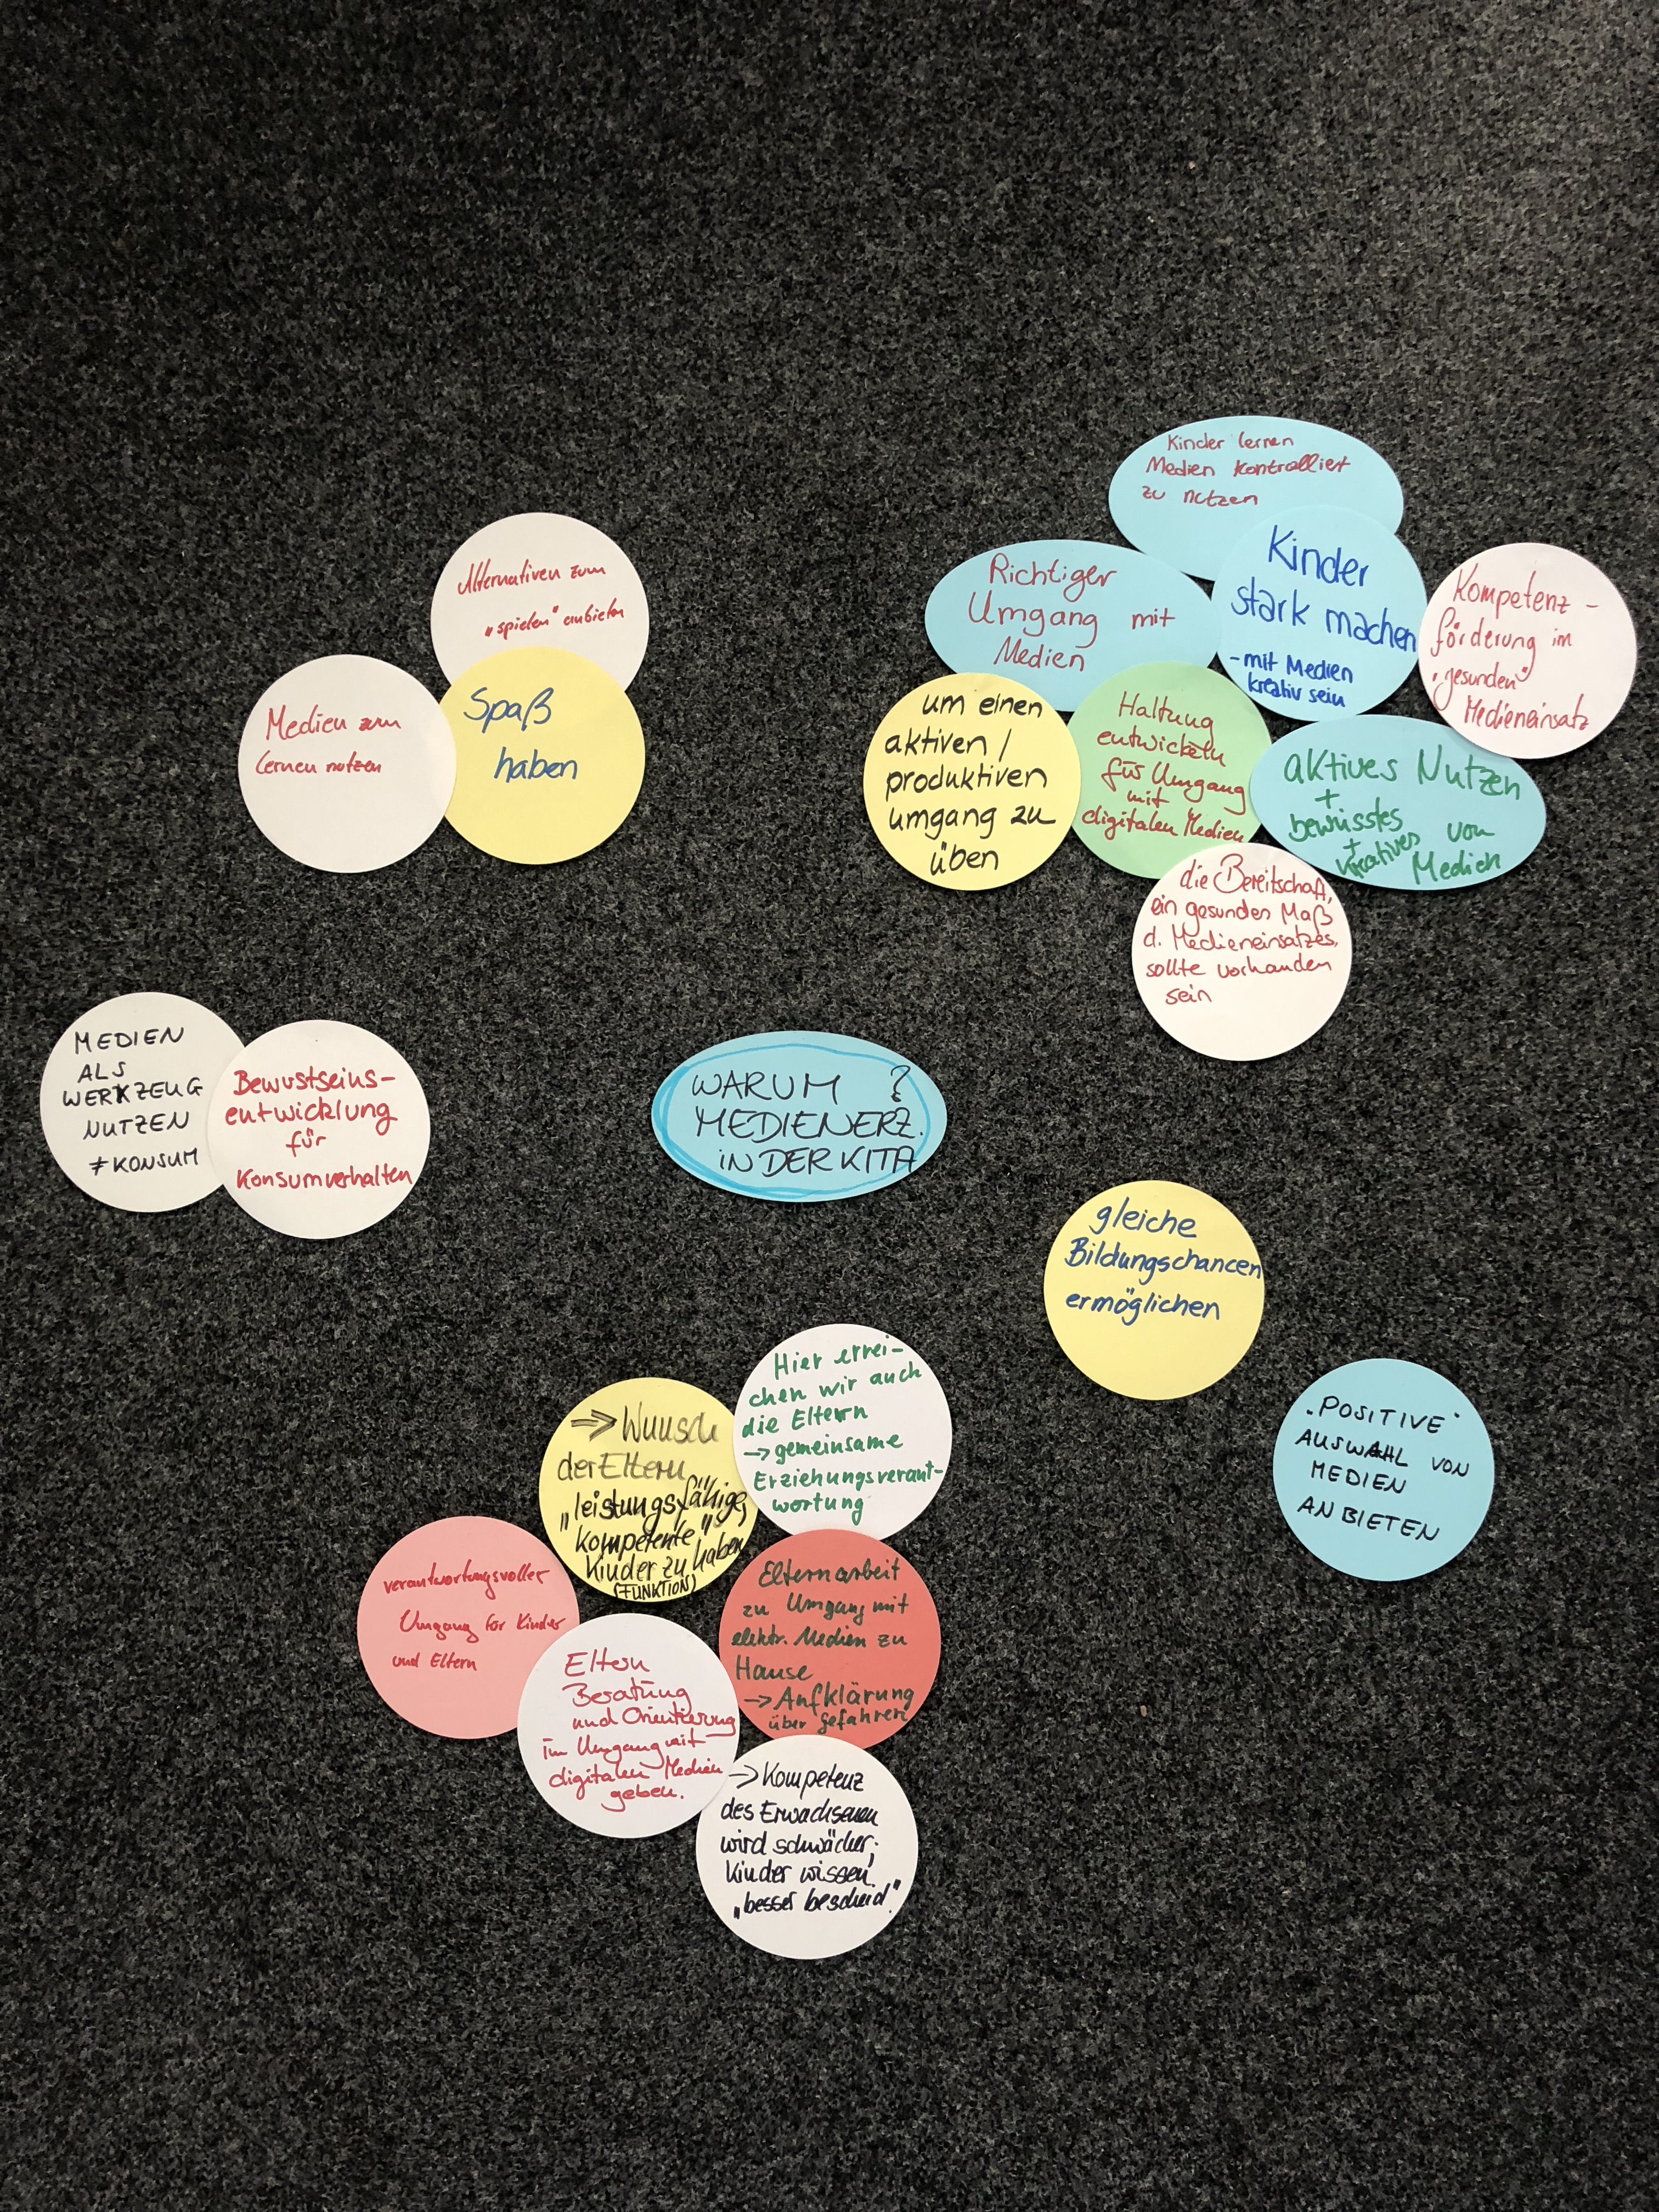 Kinder lernen
Medien kontrolliert
zu nutzen
Kinder
stark machen
- mit Medien
kreativ sein
Richtiger
Umgang mit
Medien
Kompetenz-
förderung im
"gesunden"
Medieneinsatz
um einen
aktiven /
produktiven
umgang zu
üben
Haltung
entwickeln
für Umgang
mit
digitalen Medien
aktives Nutzen
+
bewusstes von
+
kreatives Medien
die Bereitschaft,
ein gesundes Maß
d. Medieneinsatzes,
sollte vorhanden
sein
Alternativen zum
„spielen“ anbieten
Medien zum
Lernen nutzen
Spaß
haben
MEDIEN
ALS
WERKZEUG
NUTZEN
≠ KONSUM
Bewustseins-
entwicklung
für
Konsumverhalten
WARUM ?
MEDIENERZ.
IN DER KITA
gleiche
Bildungschancen
ermöglichen
"POSITIVE"
AUSWAHL VON
MEDIEN
ANBIETEN
Hier errei-
chen wir auch
die Eltern
→ gemeinsame
Erziehungsverant-
wortung
⇒ Wunsch
der Eltern
„leistungsfähige,
kompetente“
Kinder zu haben
(FUNKTION)
verantwortungsvoller
Umgang für Kinder
und Eltern
Elternarbeit
zu Umgang mit
elektr. Medien zu
Hause
→ Aufklärung
über gefahren
Eltern
Beratung
und Orientierung
im Umgang mit
digitalen Medien
geben.
→ Kompetenz
des Erwachsenen
wird schwächer;
Kinder wissen
„besser bescheid“.